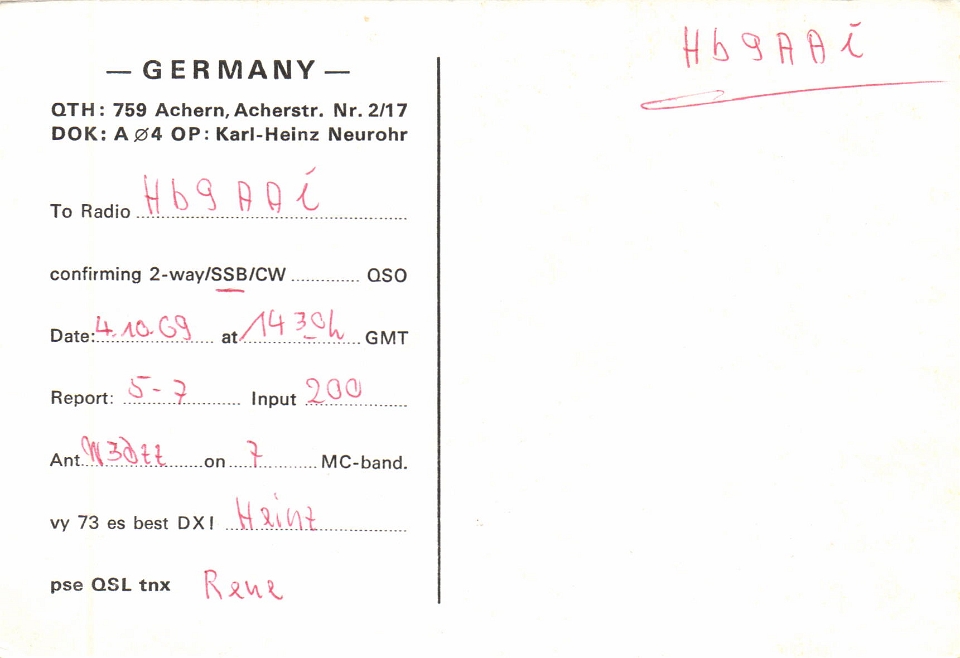 — GERMANY —
QTH: 759 Achern, Acherstr. Nr. 2/17
DOK: A Ø4 OP: Karl-Heinz Neurohr
To Radio Hb9AAi
confirming 2-way/SSB/CW QSO
Date: 4.10.69 at 1430h GMT
Report: 5-7 Input 200
Ant. W3Dzz on 7 MC-band.
vy 73 es best DX! Heinz
pse QSL tnx Rene
Hb9AAi